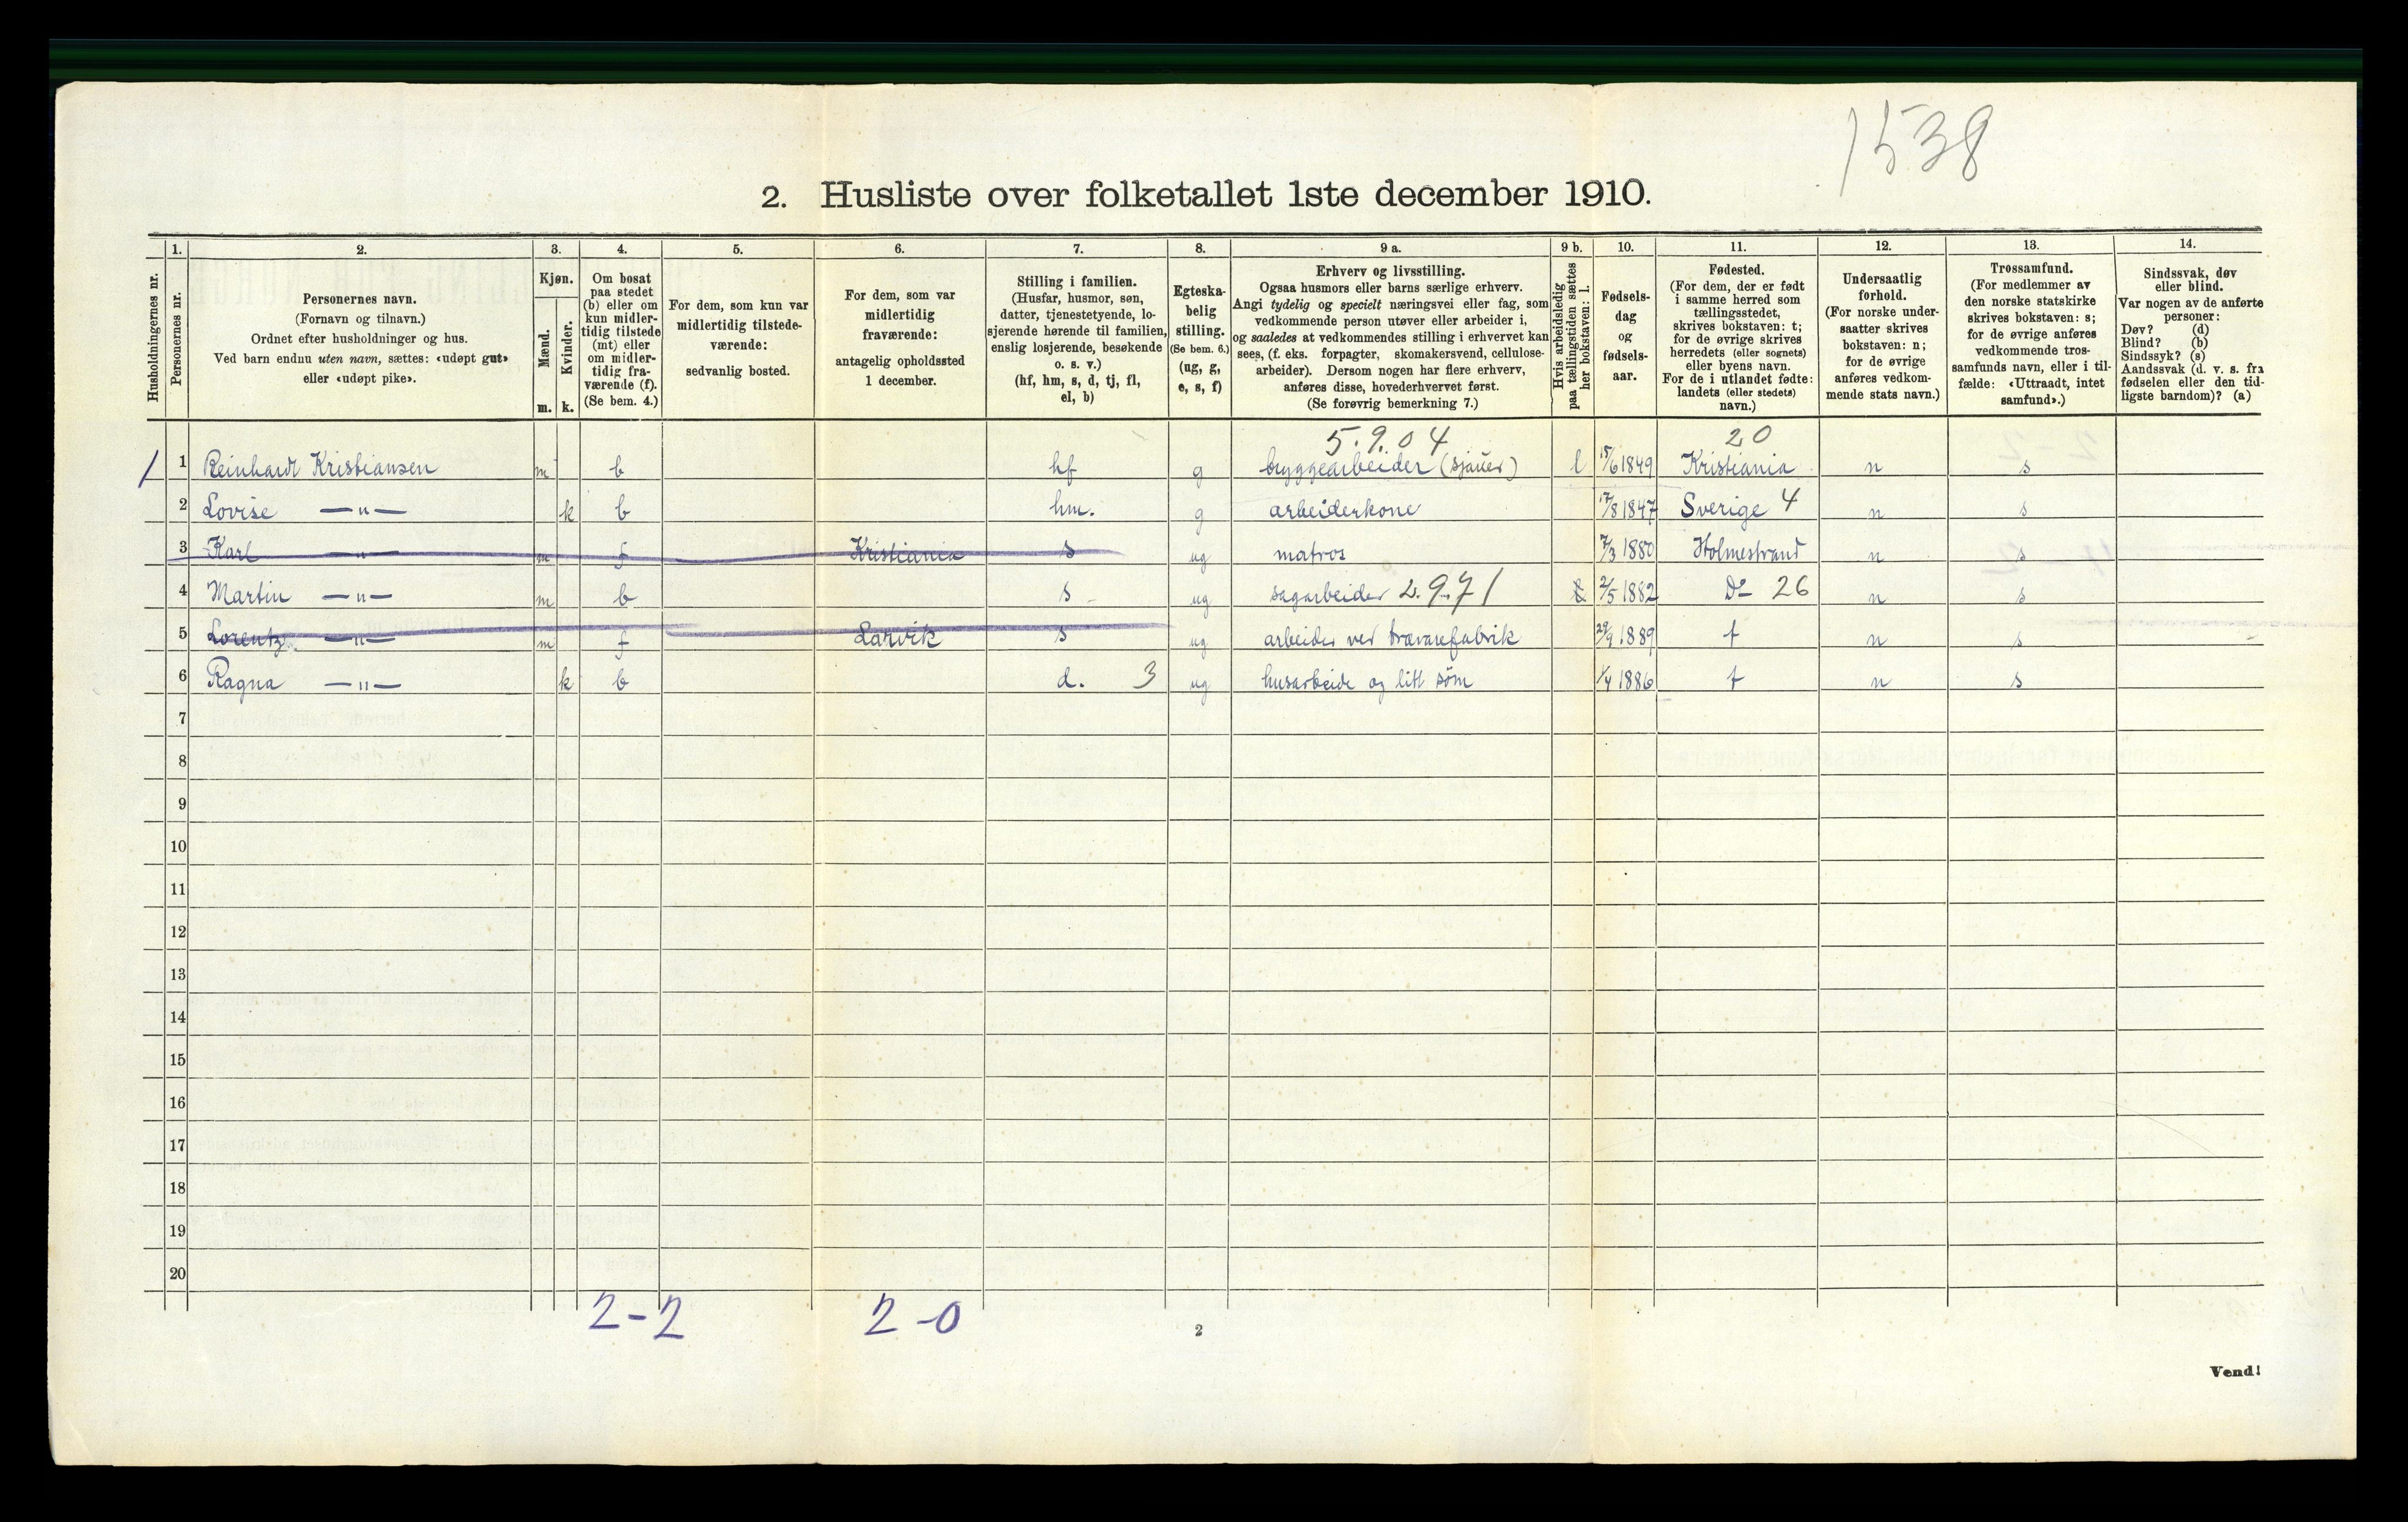 1538
2. Husliste over folketallet 1ste december 1910.
Husholdningernes nr.
1.
Personernes nr.
2.
Personernes navn.
(Fornavn og tilnavn.)
Ordnet efter husholdninger og hus.
Ved barn endnu uten navn, sættes: «udøpt gut»
eller «udøpt pike».
3.
Kjøn.
Mænd.
Kvinder.
m. k.
4.
Om bosat
paa stedet
(b) eller om
kun midler-
tidig tilstede
(mt) eller
om midler-
tidig fra-
værende (f).
(Se bem. 4.)
5.
For dem, som kun var
midlertidig tilstede-
værende:
sedvanlig bosted.
6.
For dem, som var
midlertidig
fraværende:
antagelig opholdssted
1 december.
7.
Stilling i familien.
(Husfar, husmor, søn,
datter, tjenestetyende, lo-
sjerende hørende til familien,
enslig losjerende, besøkende
o. s. v.)
(hf, hm, s, d, tj, fl,
el, b)
8.
Egteska-
belig
stilling.
(Se bem. 6.)
(ug, g,
e, s, f)
9 a.
Erhverv og livsstilling.
Ogsaa husmors eller barns særlige erhverv.
Angi tydelig og specielt næringsvei eller fag, som
vedkommende person utøver eller arbeider i,
og saaledes at vedkommendes stilling i erhvervet kan
sees, (f. eks. forpagter, skomakersvend, cellulose-
arbeider). Dersom nogen har flere erhverv,
anføres disse, hovederhvervet først.
(Se forøvrig bemerkning 7.)
9 b.
Hvis arbeidsledig
paa tællingstiden sættes
her bokstaven: l.
10.
Fødsels-
dag
og
fødsels-
aar.
11.
Fødested.
(For dem, der er født
i samme herred som
tællingsstedet,
skrives bokstaven: t;
for de øvrige skrives
herredets (eller sognets)
eller byens navn.
For de i utlandet fødte:
landets (eller stedets)
navn.)
12.
Undersaatlig
forhold.
(For norske under-
saatter skrives
bokstaven: n;
for de øvrige
anføres vedkom-
mende stats navn.)
13.
Trossamfund.
(For medlemmer av
den norske statskirke
skrives bokstaven: s;
for de øvrige anføres
vedkommende tros-
samfunds navn, eller i til-
fælde: «Uttraadt, intet
samfund».)
14.
Sindssvak, døv
eller blind.
Var nogen av de anførte
personer:
Døv? (d)
Blind? (b)
Sindssyk? (s)
Aandssvak (d. v. s. fra
fødselen eller den tid-
ligste barndom)? (a)
5.9.04 20
1 1 Reinhardt Kristiansen m b hf g bryggearbeider (sjauer) l 15/6 1849 Kristiania n s
2 Lovise —"— k b hm. g arbeiderkone 17/8 1847 Sverige 4 n s
3 Karl —"— m f Kristiania s ug matros 7/3 1880 Holmestrand n s
4 Martin —"— m b s ug sagarbeider 2.9.71 2/5 1882 Do 26 n s
5 Lorentz —"— m f Larvik s ug arbeider ved trævarefabrik 29/9 1889 t n s
6 Ragna —"— k b d. 3 ug husarbeide og litt søm 1/4 1886 t n s
7
8
9
10
11
12
13
14
15
16
17
18
19
20
2-2 2-0
2
Vend!